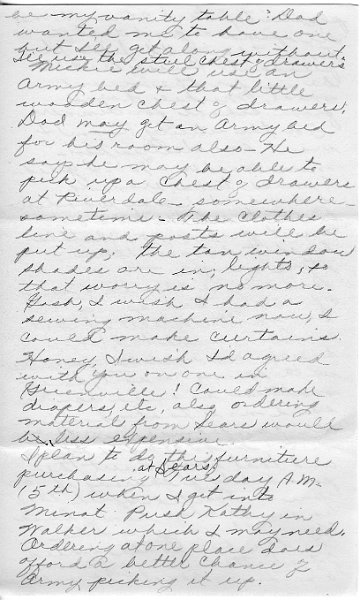 be my vanity table. Dad
wanted me to have one
but I'll get along without.
I'll use the steel chest of drawers
Mickie will use an
Army bed & that little
wooden chest of drawers.
Dad may get an Army bed
for his room also - He
says he may be able to
pick up a chest of drawers
at Riverdale - somewhere -
sometime - The clothes
line and posts will be
put up. The tan window
shades are in, lights, so
that worry is no more.
Gosh, I wish I had a
sewing machine now, I
could make curtains.
Honey, I wish I'd agreed
with you on one in
Greenville! Could made
diapers, etc, also ordering
material from Sears would
be less expensive.
I plan to do this furniture
purchasing at Sears, Tuesday A.M.
15th) when I get into
Minot Push Kathy in
Walker which I may need.
Ordering at one place does
afford a better chance of
Army picking it up.